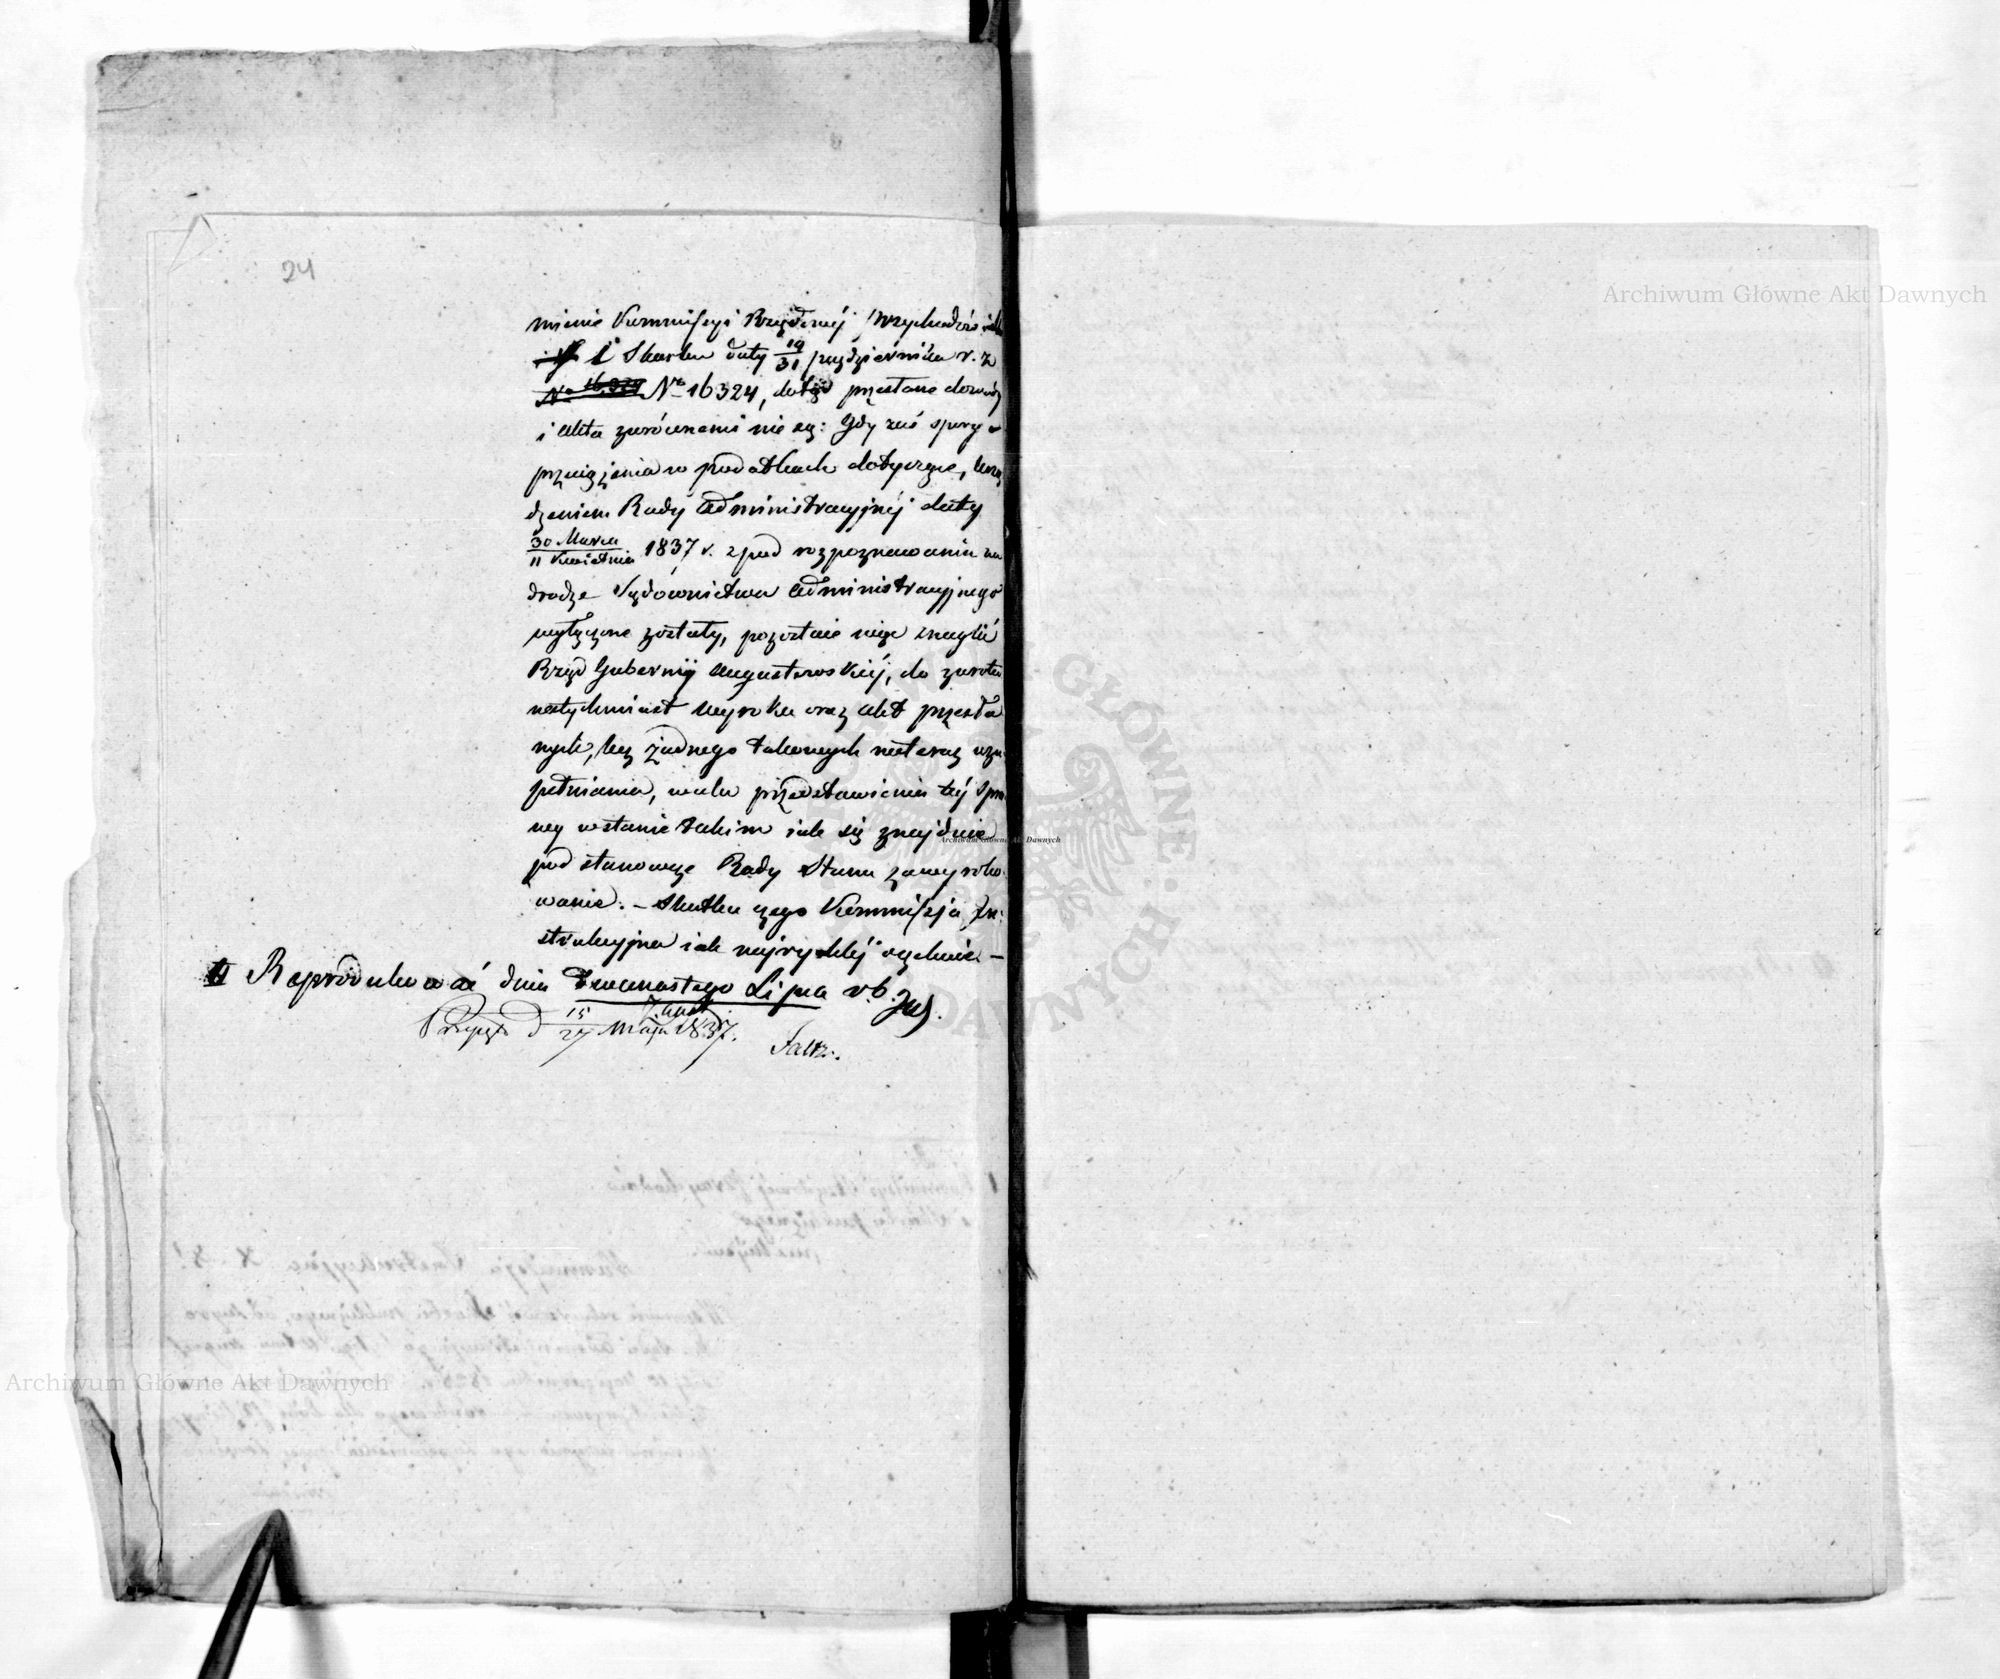 24
mienie Kommissyi Rządowéj Przychodów
i Skarbu daty 19/31 października r. z
N° 16,324 N° 16324, dotąd przesłane dowody
i akta zwrócenemi nie są: Gdy zaś spory o
przeciążenia w podatkach dotyczące, Urzą
dzeniem Rady Administracyjnéj daty
30 Marca / 11 Kwietnia 1837 r. z pod rozpoznawania na
drodze Sądownictwa Administracyjnego
wyłączone zostały, pozostaie więc znaglić
Rząd Gubernij Augustowskiéj, do zwrotu
natychmiast wyroku oraz akt przesła
nych, bez żadnego takowych nateraz uzu
pełniania, w celu przedstawienia téj spra
wy w stanie takim iak się znajduie
pod stanowcze Rady Stanu zawyroko
wanie. – Skutku czego Kommissja In:
strukcyjna iak najrychléj oczekuie –
Reprodukować dnia dwunastego Lipca r. b.
d 15/27 Maja 1837.
Archiwum Główne Akt Dawnych
Archiwum Główne Akt Dawnych
Archiwum Główne Akt Dawnych